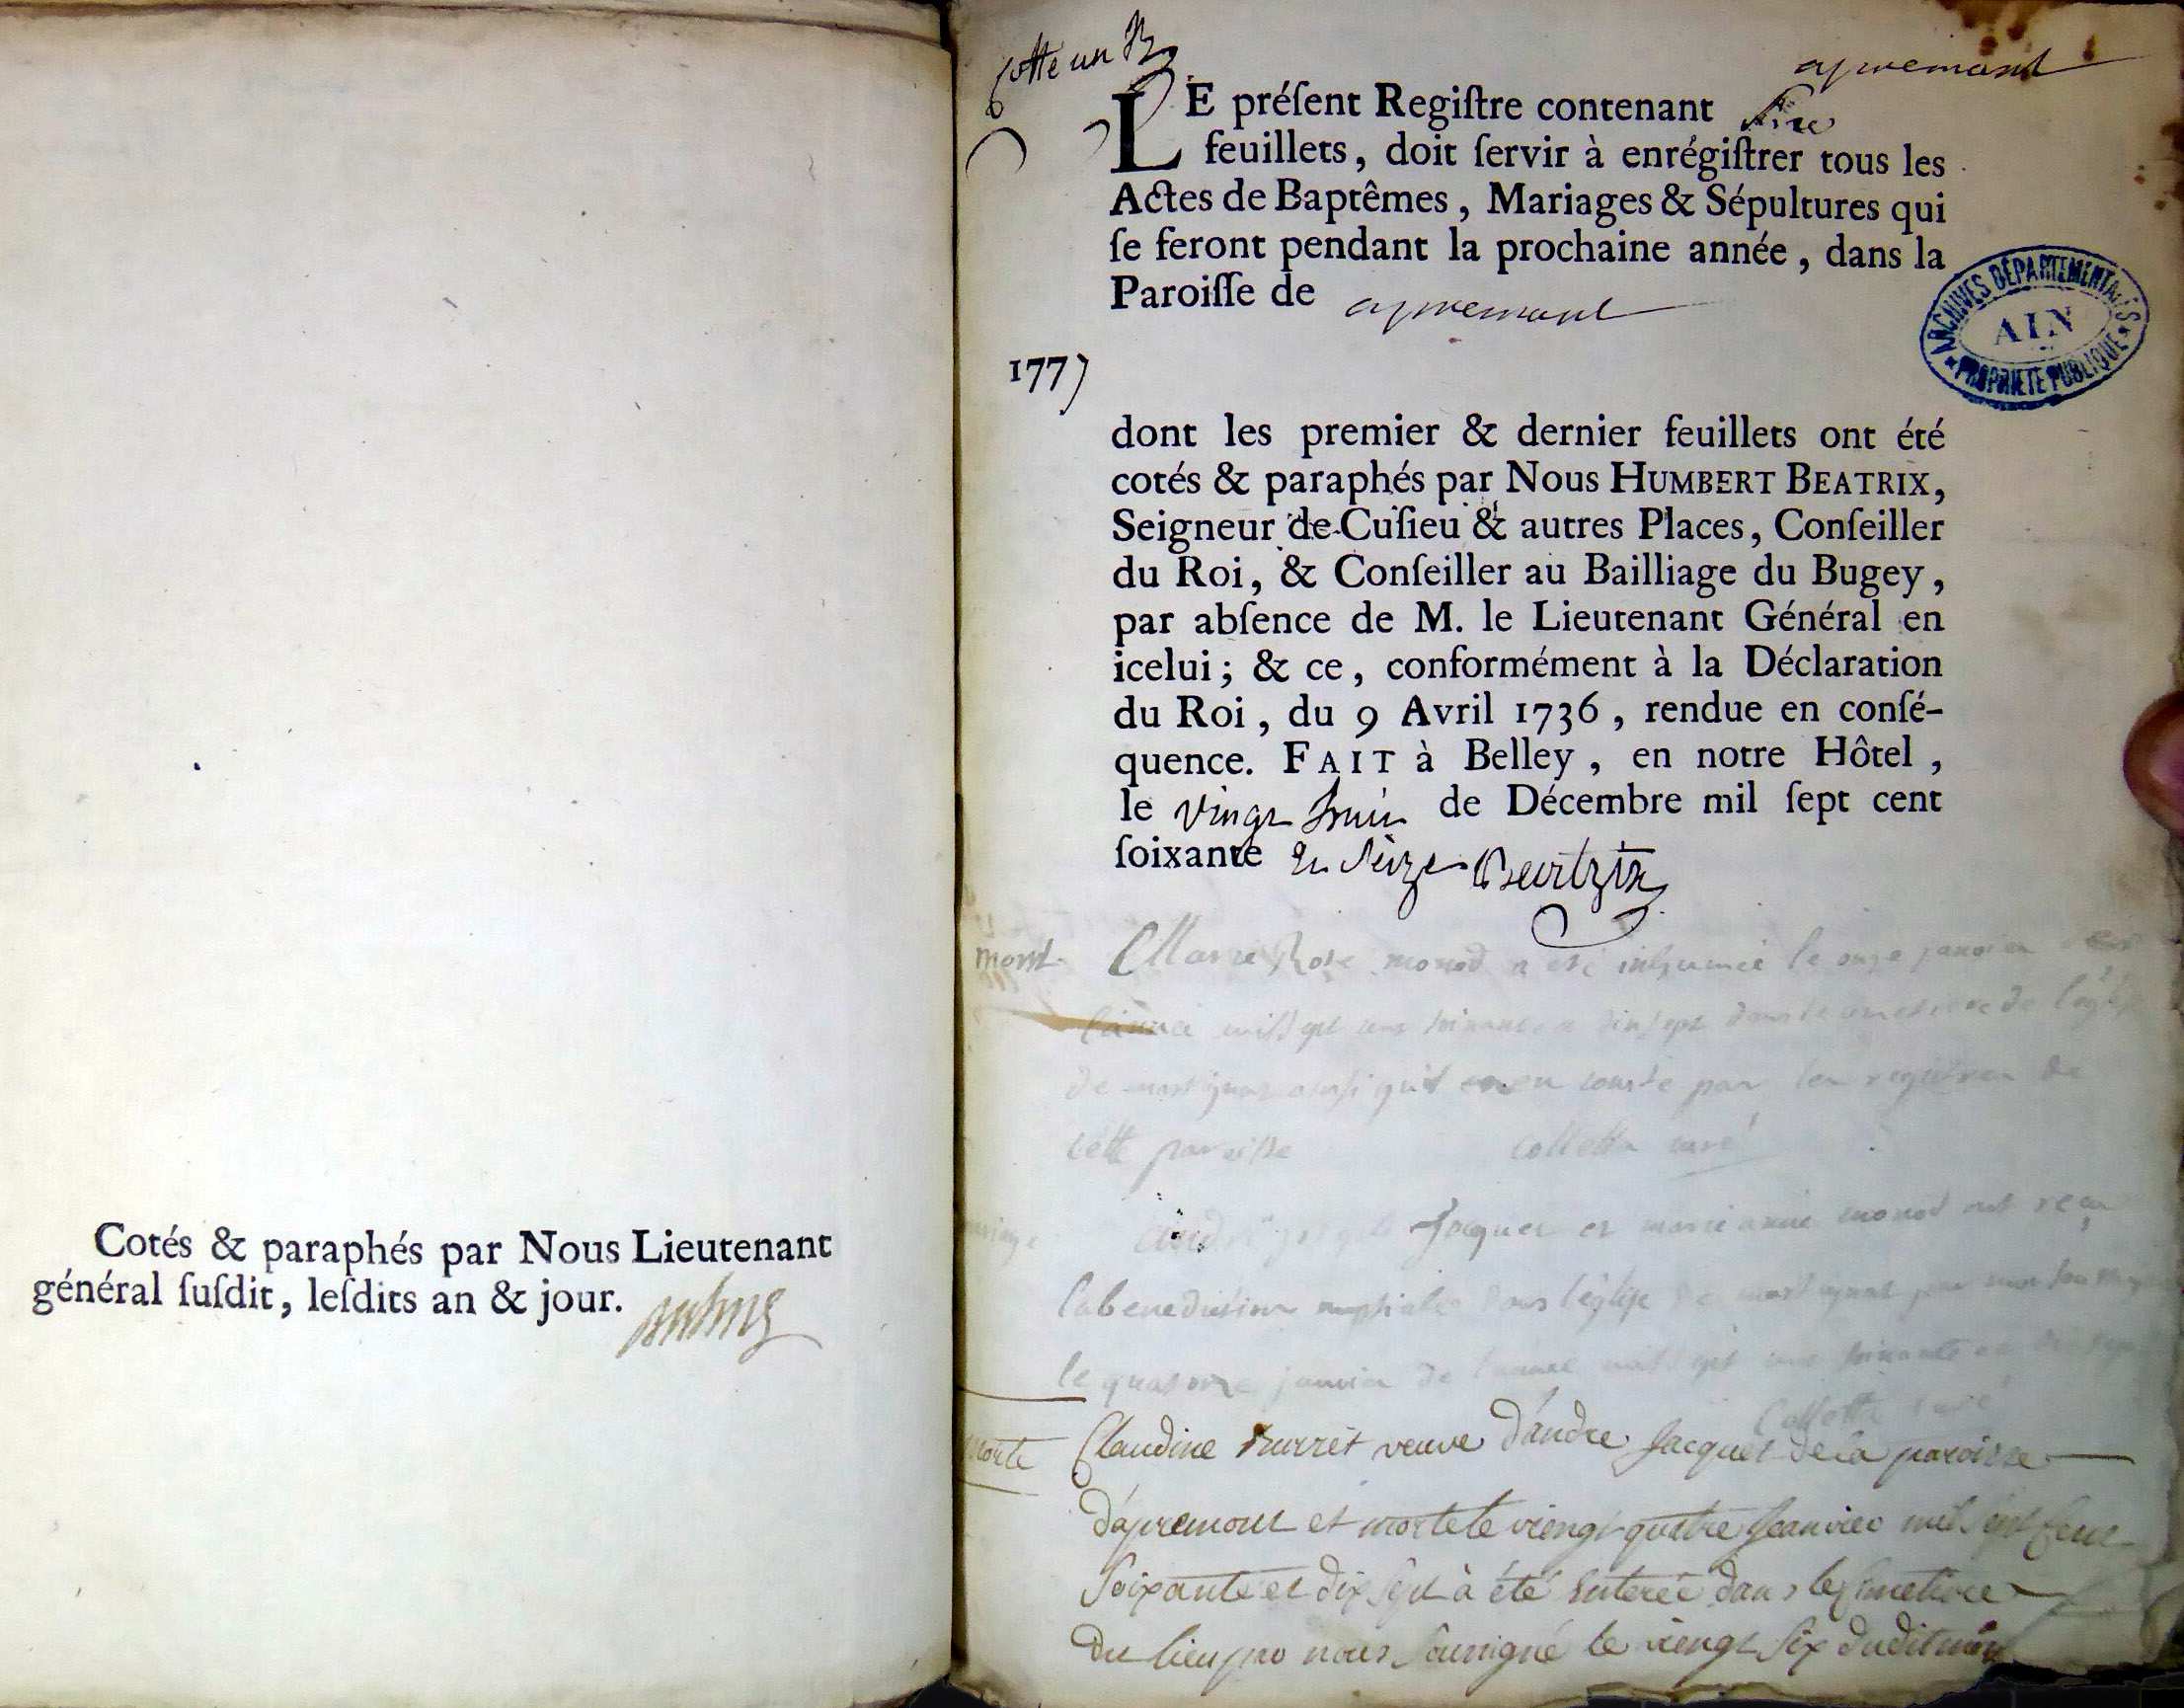 Cotés & paraphés par Nous Lieutenant
général ſuſdit, leſdits an & jour.
Cotté un
apremont
LE préſent Regiſtre contenant
feuillets, doit ſervir à enrégiſtrer tous les
Actes de Baptêmes, Mariages & Sépultures qui
ſe feront pendant la prochaine année, dans la
Paroiſſe de apremont
ARCHIVES DÉPARTEMENTALES
AIN
PROPRIÉTÉ PUBLIQUE
1777
dont les premier & dernier feuillets ont été
cotés & paraphés par Nous HUMBERT BEATRIX,
Seigneur de Cuſieu & autres Places, Conſeiller
du Roi, & Conſeiller au Bailliage du Bugey,
par abſence de M. le Lieutenant Général en
icelui; & ce, conformément à la Déclaration
du Roi, du 9 Avril 1736, rendue en conſé-
quence. FAIT à Belley, en notre Hôtel,
le vingt huit de Décembre mil ſept cent
ſoixante et seize Beatrix
mort
Marie Rose monod a été inhumée le onze janvier
l'année mil sept cens soixante et dix sept dans le cimetiere de l'église
de martignat ainsi qu'il conste par les registres de
cette paroisse colletta curé
mariage
jacquet et marie anne monod ont reçu
la benediction nuptiale dans l'église de martignat
le quatorze janvier de l'année mil sept cens soixante et dix sept
Colletta curé
morte
Claudine veuve d'andre Jacquet de la paroisse
d'apremont et morte le viengt quatre Jeanvier mil sept cent
Soixante et dix sept à été enterée dans le cimetiere
du lieu par nous soussigné le viengt six dudit mois